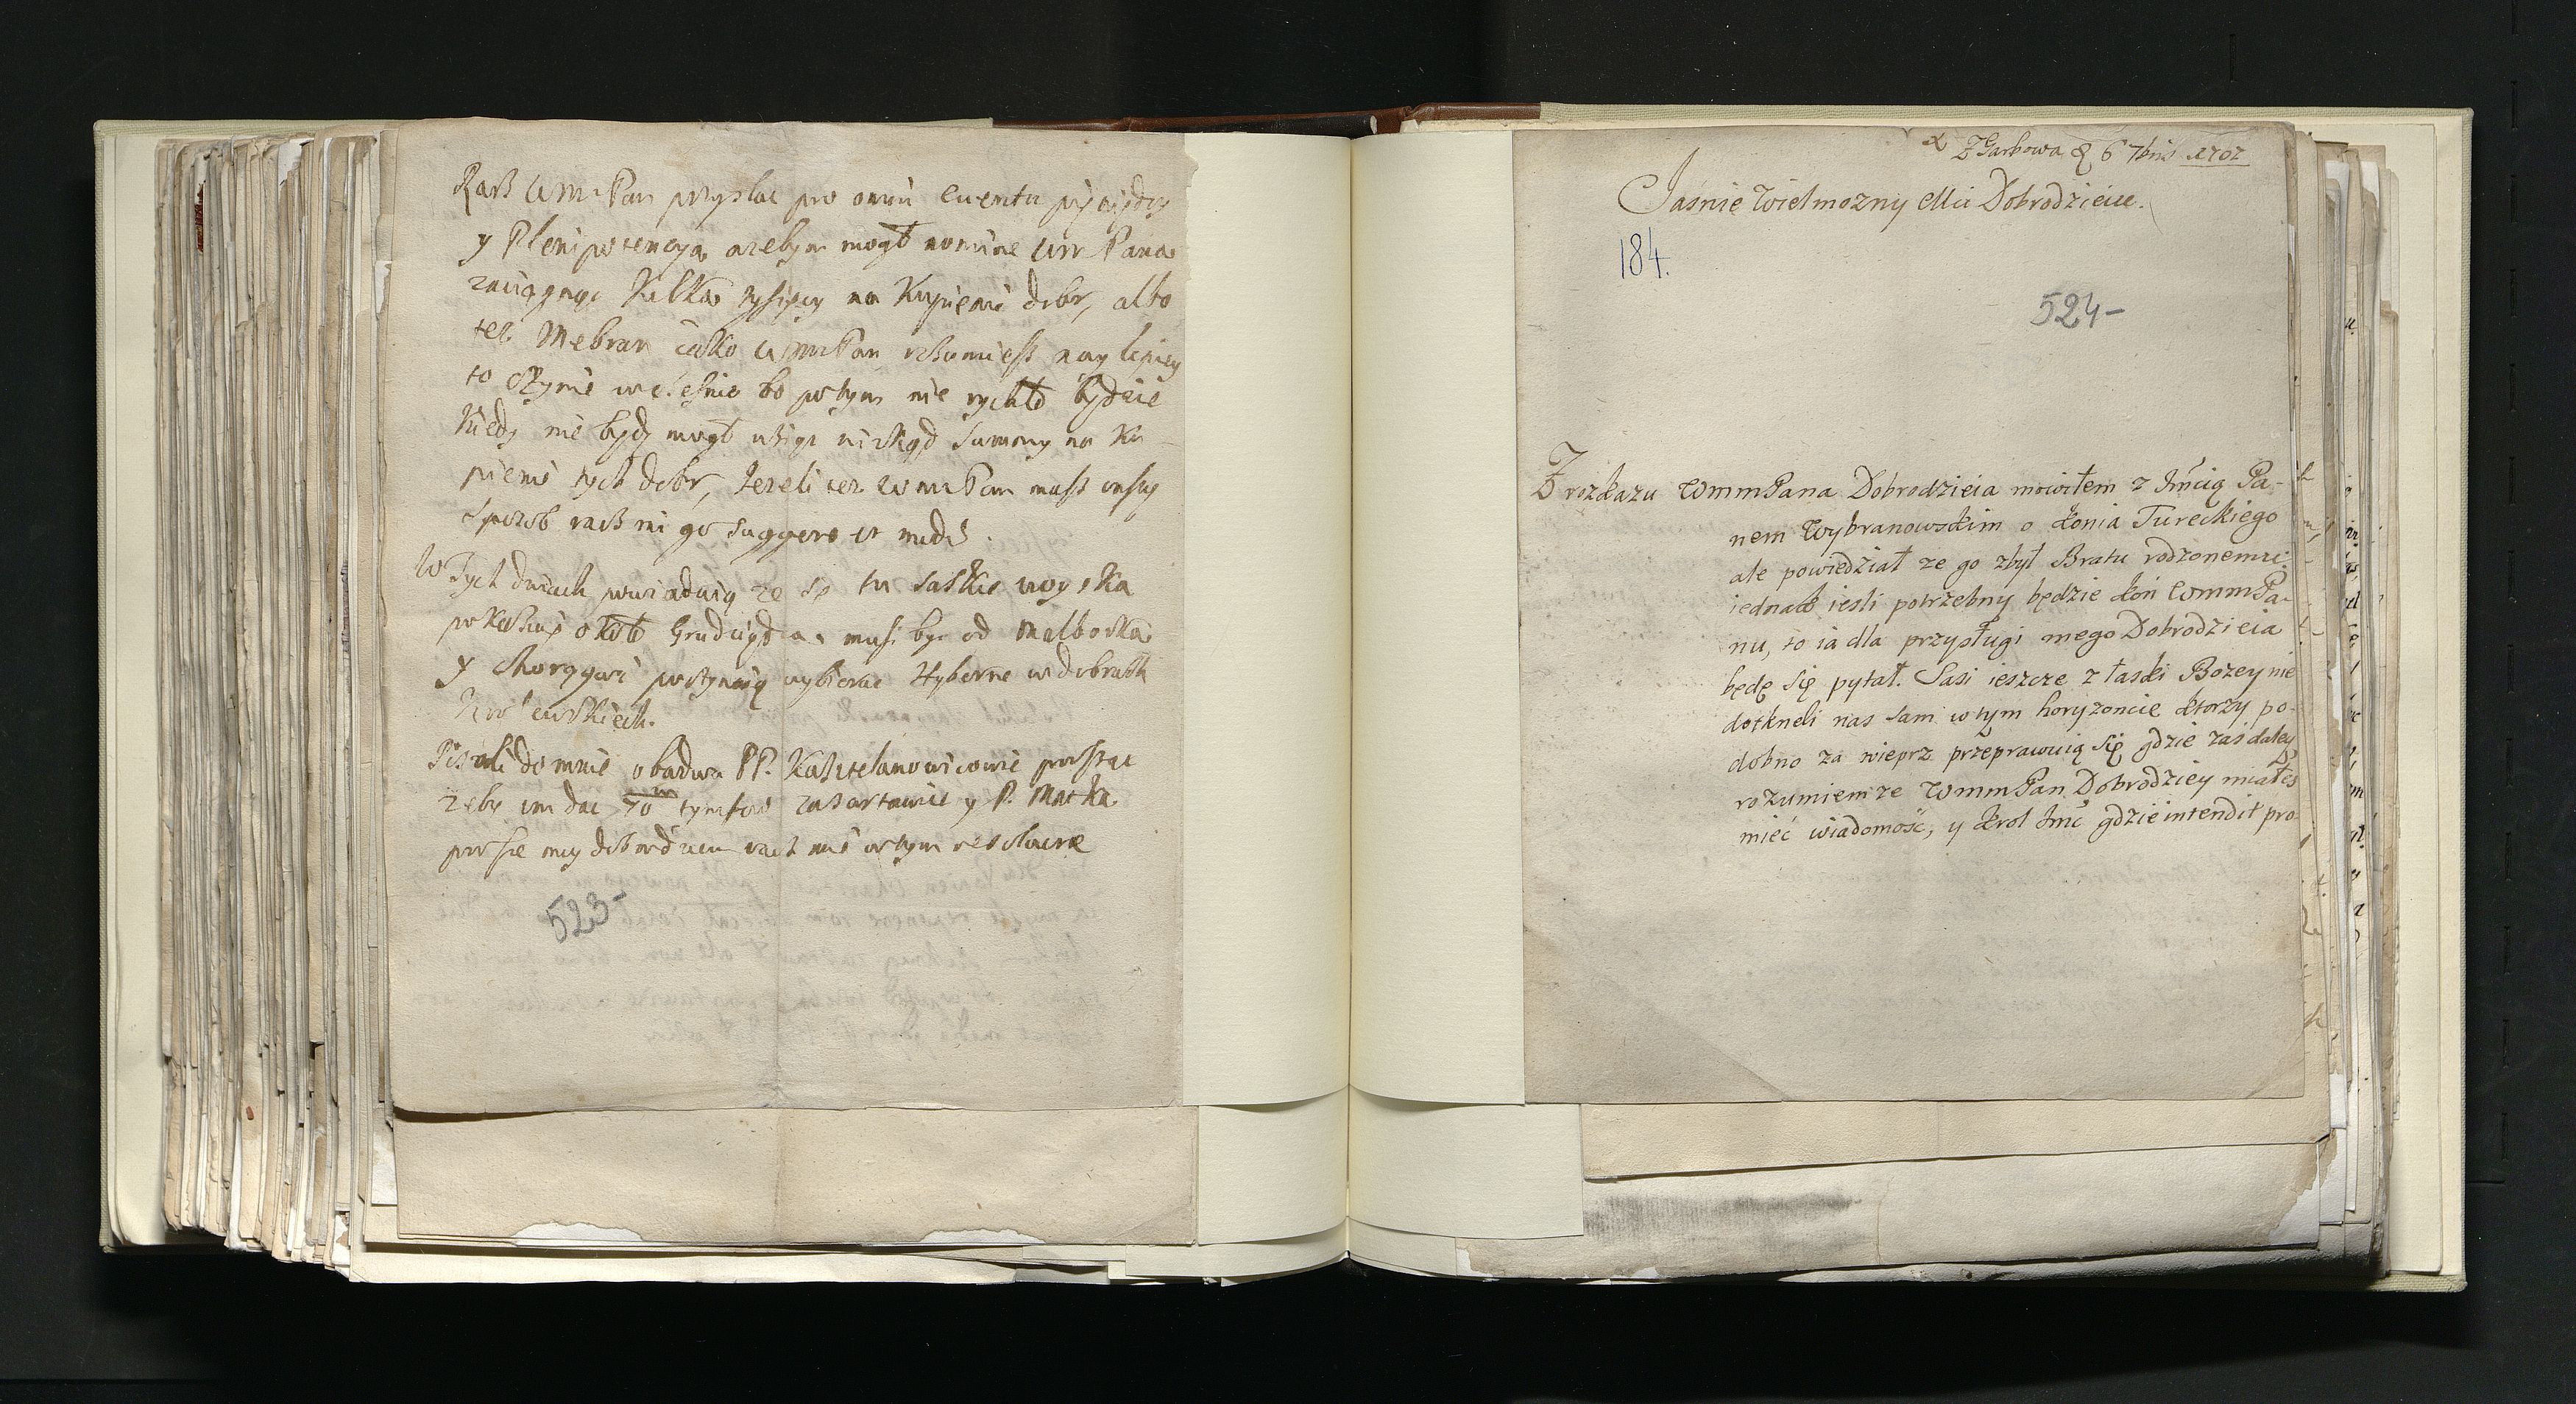 Racz WmPan przyslac pro omni eventu pieniędzy
y Plenipotencyą azebym mogł nomine Wm Pana
zaciągnąc Kilka tysięcy na Kupienie dobr, albo
tez Mebran iako WmPan rozumiesz naylepiey
to czynic wczesnie bo potym nie rychło będzie
Kiedy nie będę mogł wziąc nizkąd Summy na Ku-
pienie tych dobr, Jezeli tez WmPan masz inszy
sposob racz mi go suggere et mode.
W Tych dniach powiadaią ze se tu Saskie woyska
pokazuią około Grudziądza. musi byc od Malborka
y Choragwi poczynaią wybierac Hyberne w dobrach
Krolewskiech.
Pisali do mnie obadwa PP. Kasztelanowicowie prosząc
zeby im dac 70 tymfow y P. Matka
prosze moy dobrodzieiu racz mie w tym
523-
Z Garbowa d 6 7bris 1702
Jaśnie Wielmozny Mci Dobrodzieiu.
184.
524-
Z rozkazu WmmPana Dobrodzieia mowiłem z Jmcią Pa-
nem Wybranowskim o konia Tureckiego
ale powiedział ze go zbył Bratu rodzonemu.
iednak iesli potrzebny będzie koń WmmPa-
nu, to ia dla przysługi mego Dobrodzieia
będę się pytał. Sasi ieszcze z łaski Bozey nie
dotkneli nas sam w tym horyzoncie ktorzy po-
dobno za wieprz przeprawuią się gdzie zaś daley
rozumiem ze WmmPan Dobrodziey miałes
mieć wiadomość, y krol Jmć gdzie intendit pro